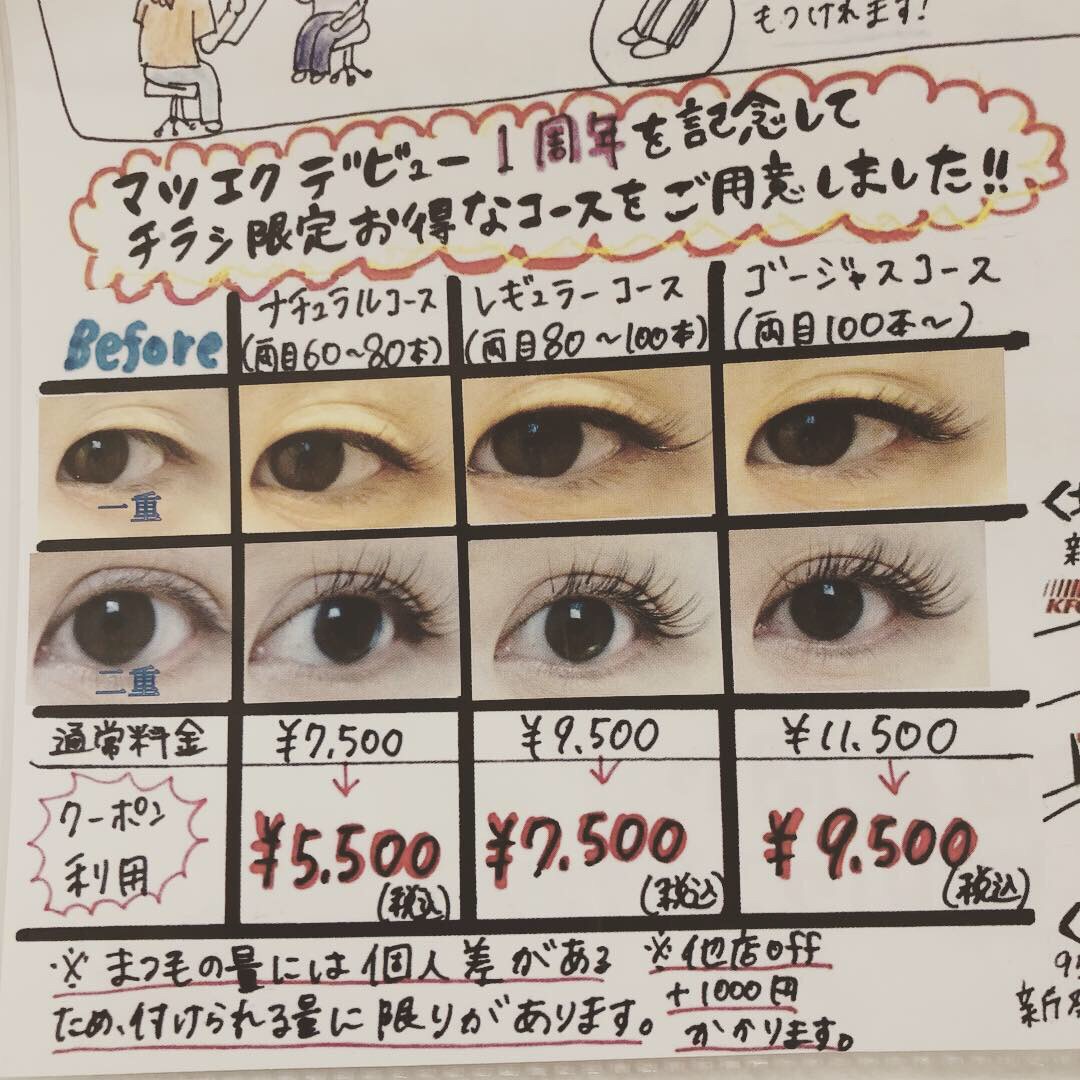 もつけれます!
マツエクデビュー1周年を記念して
チラシ限定お得なコースをご用意しました!!
Before
ナチュラルコース
(両目60~80本)
レギュラーコース
(両目80~100本)
ゴージャスコース
(両目100本~)
一重
二重
通常料金
¥7,500
¥9,500
¥11,500
クーポン
利用
¥5,500
(税込)
¥7,500
(税込)
¥9,500
(税込)
※まつ毛の量には個人差がある
ため、付けられる量に限りがあります。
※他店off
+1000円
かかります。